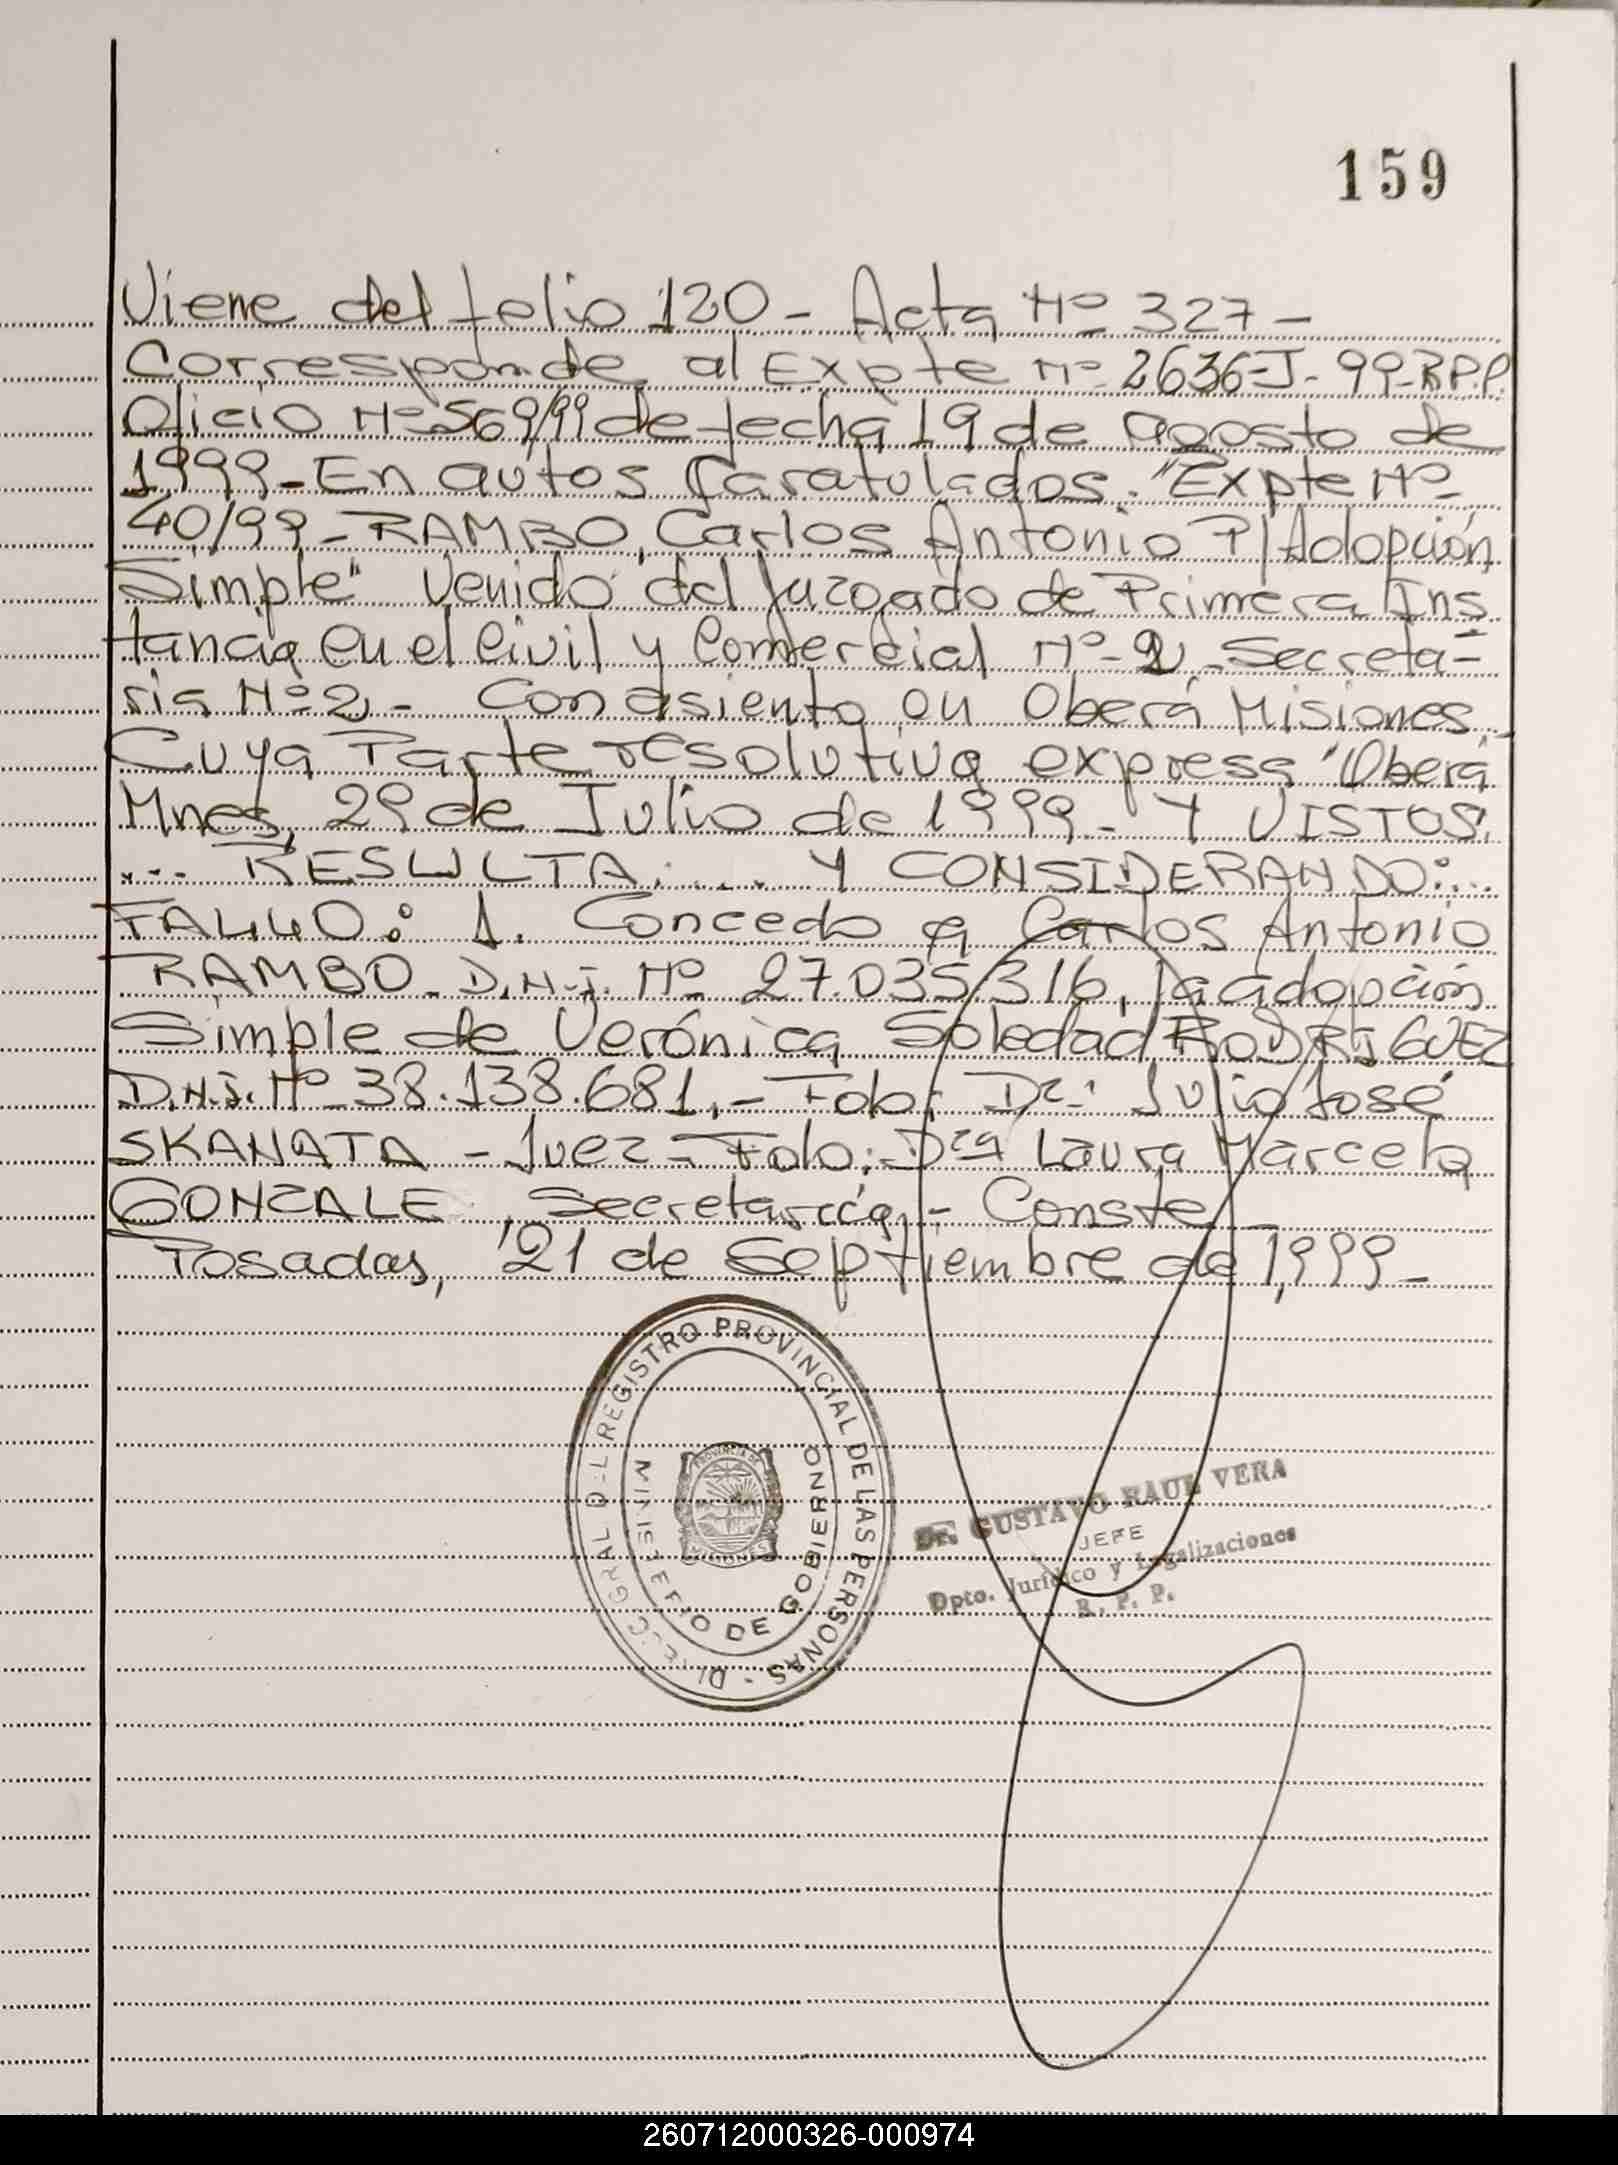 159
Viene del folio 120 - Acta Nº 327 -
Corresponde al Expte Nº 2636-J-99-R.P.P.
Oficio Nº 569/99 de fecha 19 de agosto de
1999 - En autos Caratulados. "Expte Nº
40/99 - RAMBO, Carlos Antonio P/Adopción
Simple" Venido del Juzgado de Primera Ins
tancia en el Civil y Comercial Nº 2 - Secreta-
ria Nº 2 - Con asiento en Oberá Misiones
Cuya Parte resolutiva expresa "Oberá
Mnes, 29 de Julio de 1999 - Y VISTOS:
... RESULTA: .... Y CONSIDERANDO: ...
FALLO: 1. Concedo a Carlos Antonio
RAMBO - D.N.I. Nº 27.035.316, la adopción
Simple de Verónica Soledad RODRIGUEZ
D.N.I. Nº 38.138.681. - Fdo: Dr. Julio José
SKANATA - Juez - Fdo: Dra Laura Marcela
GONZALE Secretaria - Conste
Posadas, 21 de Septiembre de 1,999 -
DIRECC GRAL DEL REGISTRO PROVINCIAL DE LAS PERSONAS -
MINISTERIO DE GOBIERNO
PROVINCIA DE
MISIONES
Dr. GUSTAVO RAUL VERA
JEFE
Dpto. Jurídico y Legalizaciones
R. P. P.
260712000326-000974